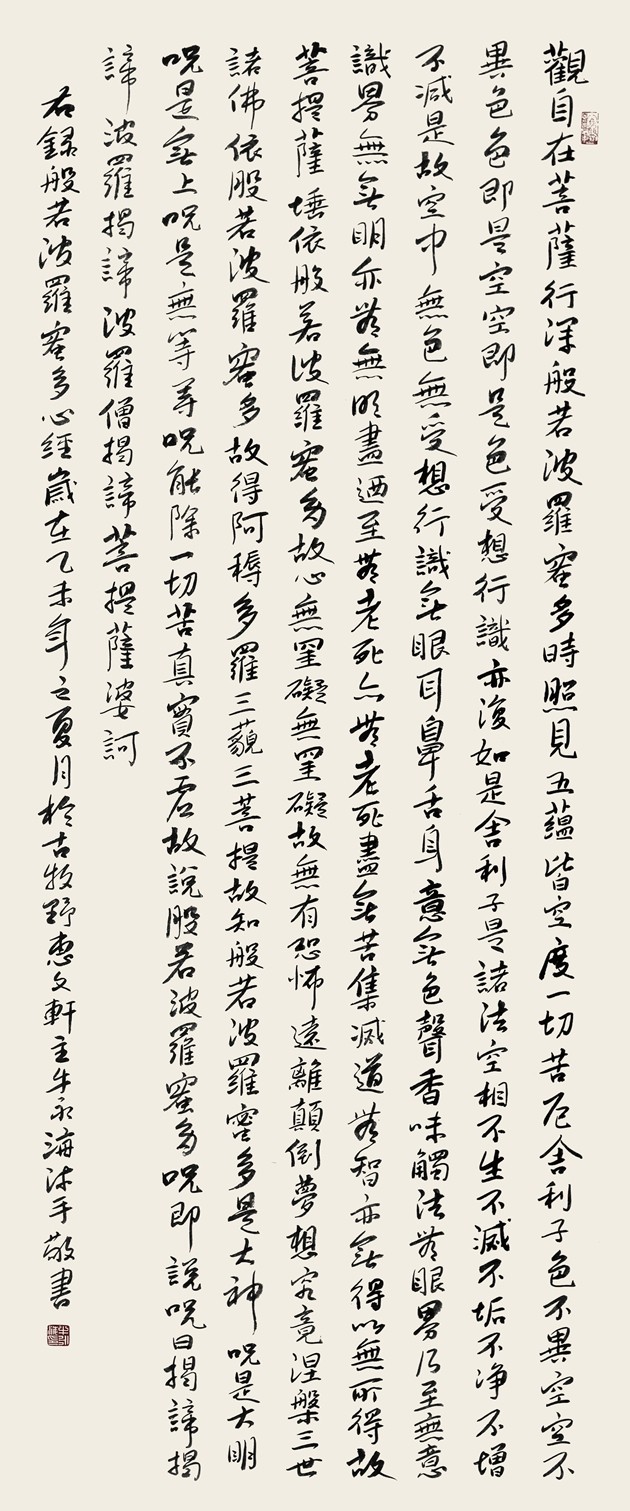 觀自在菩薩行深般若波羅蜜多時照見五蘊皆空度一切苦厄舍利子色不異空空不
異色色即是空空即是色受想行識亦復如是舍利子是諸法空相不生不滅不垢不净不增
不减是故空中無色無受想行識無眼耳鼻舌身意無色聲香味觸法無眼界乃至無意
識界無無明亦無無明盡迺至無老死亦無老死盡無苦集滅道無智亦無得以無所得故
菩提薩埵依般若波羅蜜多故心無罣礙無罣礙故無有恐怖遠離顛倒夢想究竟涅槃三世
諸佛依般若波羅蜜多故得阿耨多羅三藐三菩提故知般若波羅蜜多是大神呪是大明
呪是無上呪是無等等呪能除一切苦真實不虛故說般若波羅蜜多呪即說呪曰揭諦揭
諦波羅揭諦波羅僧揭諦菩提薩婆訶
右錄般若波羅蜜多心經歲在乙未年之夏月於古牧野惠文軒主牛永海沐手敬書